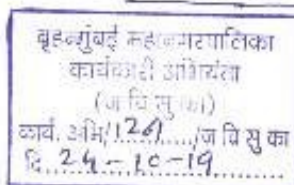 बृहन्मुंबई महानगरपालिका
कार्यकारी अभियंता
(ज वि सु का)
कार्य. अभि/.......... /ज वि सु का
दि. 24-10-19